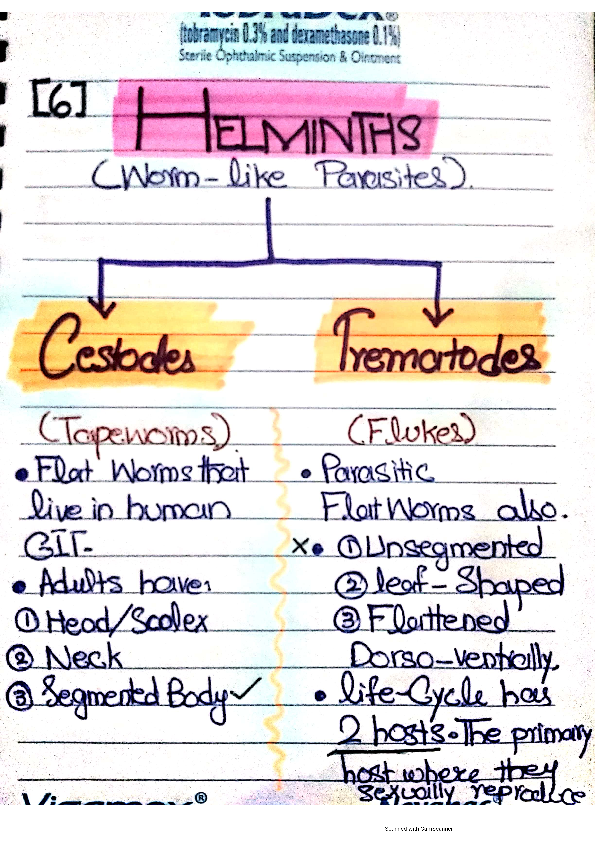 TobraDex®
(tobramycin 0.3% and dexamethasone 0.1%)
Sterile Ophthalmic Suspension & Ointment
[6] HELMINTHS
(Worm-like Parasites).
Cestodes
(Tapeworms)
• Flat Worms that
live in human
GIT.
• Adults have:
① Head/Scolex
② Neck
③ Segmented Body ✓
Trematodes
(Flukes)
• Parasitic
Flat Worms also.
x• ① Unsegmented
② leaf-Shaped
③ Flattened
Dorso-ventrally.
• life-Cycle has
2 hosts. The primary
host where they
sexually reproduce
Vigamox®
Scanned with CamScanner